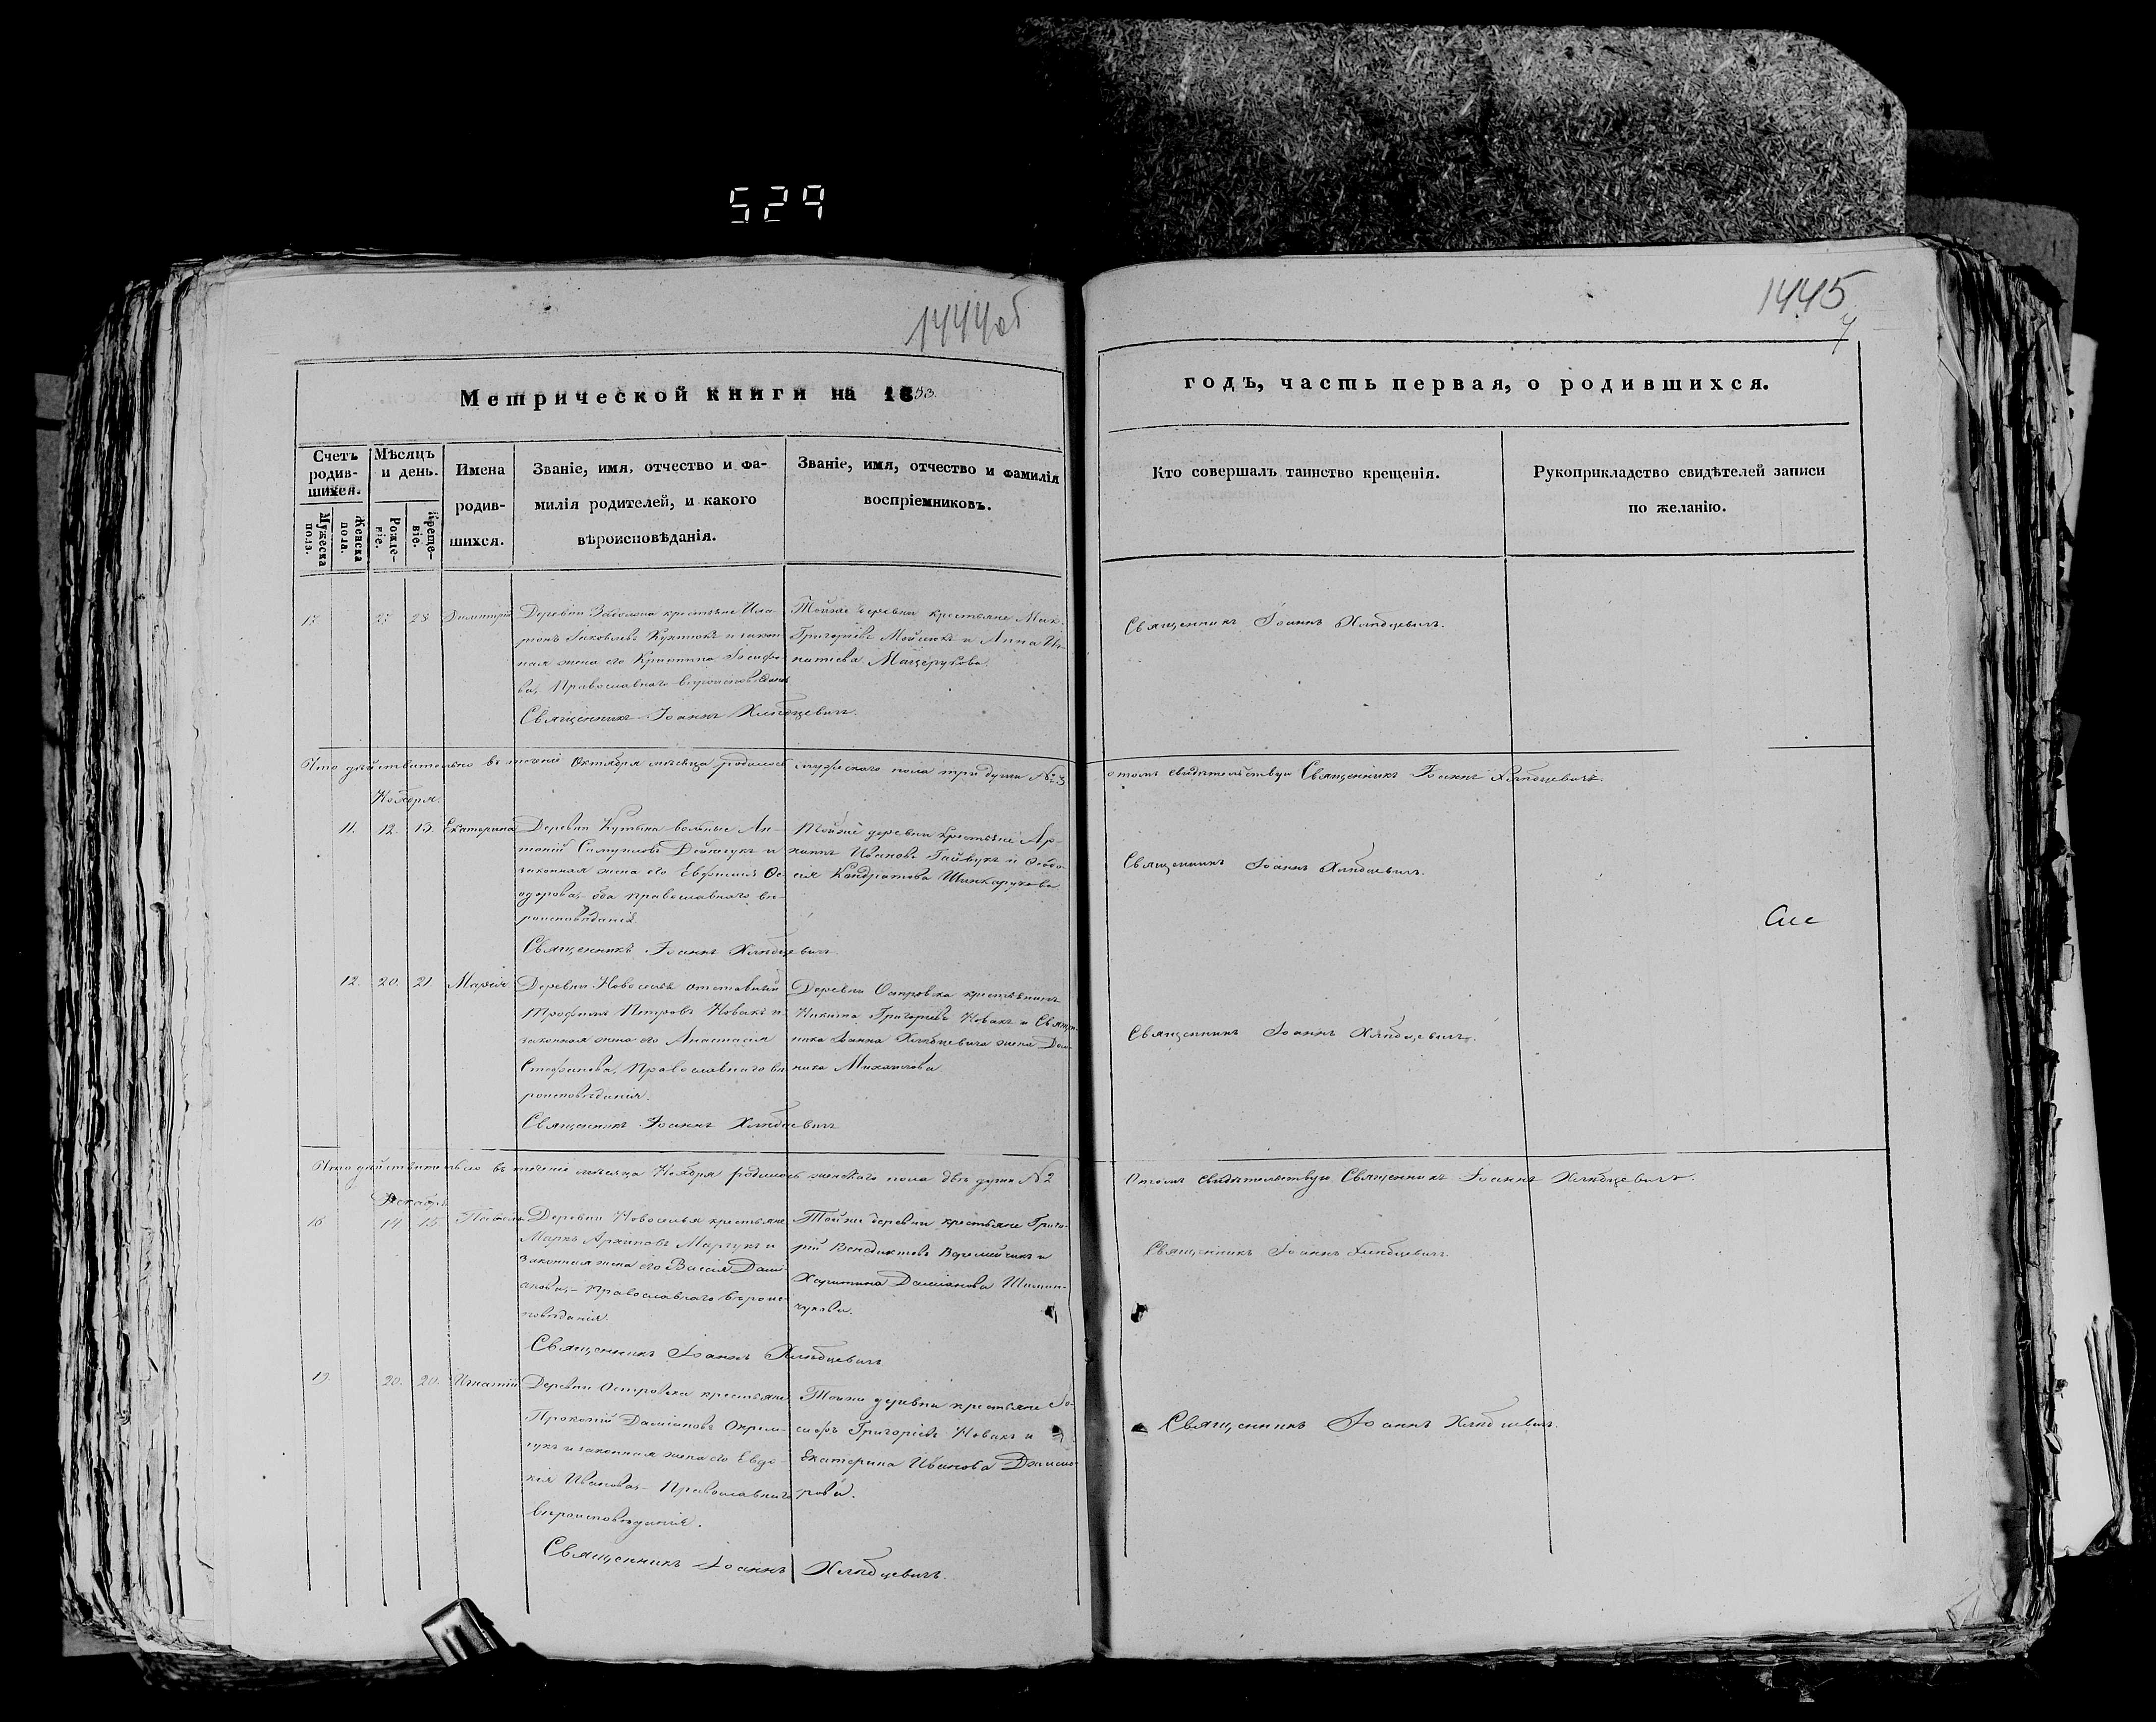 529
1444об
1445
Метрической книги на 1853
годъ, часть первая, о родившихся.
Счетъ родив-шихся.
Мужеска пола.
Женска пола.
Мѣсяцъ и день.
Рожде-ніе.
Креще-ніе.
Имена
родив-
шихся.
Званіе, имя, отчество и фа-
милія родителей, и какого
вѣроисповѣданія.
Званіе, имя, отчество и фамилія
воспріемниковъ.
Кто совершалъ таинство крещенія.
Рукоприкладство свидѣтелей записи
по желанію.
17. 27. 28. Димитрій
Деревни крестьяне Ила-
ріонъ Яковлевъ и закон-
ная жена его Іосифо-
ва, Православнаго вѣроисповѣданія
Священникъ Іоаннъ Хлѣбцевичъ.
Тойже деревни крестьяне
Григорьевъ и Анна Иг-
натіева
Священникъ Іоаннъ Хлѣбцевичъ.
Что дѣйствительно въ теченіи Октября мѣсяца родилось мужескаго пола три души № 3
о томъ свидѣтельствую Священникъ Іоаннъ Хлѣбцевичъ.
Ноября.
11. 12. 13. Екатерина
Деревни вольные Ан-
тоній Самуиловъ и
законная жена его Евфимія Ѳе-
одорова, оба православнаго вѣ-
роисповѣданія
Священникъ Іоаннъ Хлѣбцевичъ
Тойже деревни крестьяне
Ивановъ и Ѳеодо-
сія Кондратова Шинкарукова
Священникъ Іоаннъ Хлѣбцевичъ.
12. 20. 21. Марія
Деревни Новоселья отставный
Трофимъ Петровъ Новакъ и
законная жена его Анастасія
Стефанова, Православнаго вѣ-
роисповѣданія.
Священникъ Іоаннъ Хлѣбцевичъ
Деревни Островка крестьянинъ
Никита Григорьевъ Новакъ и Священ-
ника Іоанна Хлѣбцевича жена Дом-
ника Михайлова
Священникъ Іоаннъ Хлѣбцевичъ.
Что дѣйствительно въ теченіи мѣсяца Ноября родилось женскаго пола двѣ души № 2
О томъ свидѣтельствую Священникъ Іоаннъ Хлѣбцевичъ.
Декабрь
18 14 15 Павелъ
Деревни Новоселья крестьяне
Маркъ Архиповъ и
законная жена его Васса Дамі-
анова, Православнаго вѣроис-
повѣданія.
Священникъ Іоаннъ Хлѣбцевичъ
Тойже деревни крестьяне Григо-
рій Венедиктовъ Веремійчикъ и
Харитина Даміанова Шиман-
чукова.
Священникъ Іоаннъ Хлѣбцевичъ.
19. 20. 20. Игнатій
Деревни Островка крестьяне
Прокопій Даміановъ Охрим-
чукъ и законная жена его Евдо-
кія Иванова, Православнаго
вѣроисповѣданія.
Священникъ Іоаннъ Хлѣбцевичъ.
Тойже деревни крестьяне Іо-
сифъ Григоріевъ Новакъ и
Екатерина Иванова
Священникъ Іоаннъ Хлѣбцевичъ.